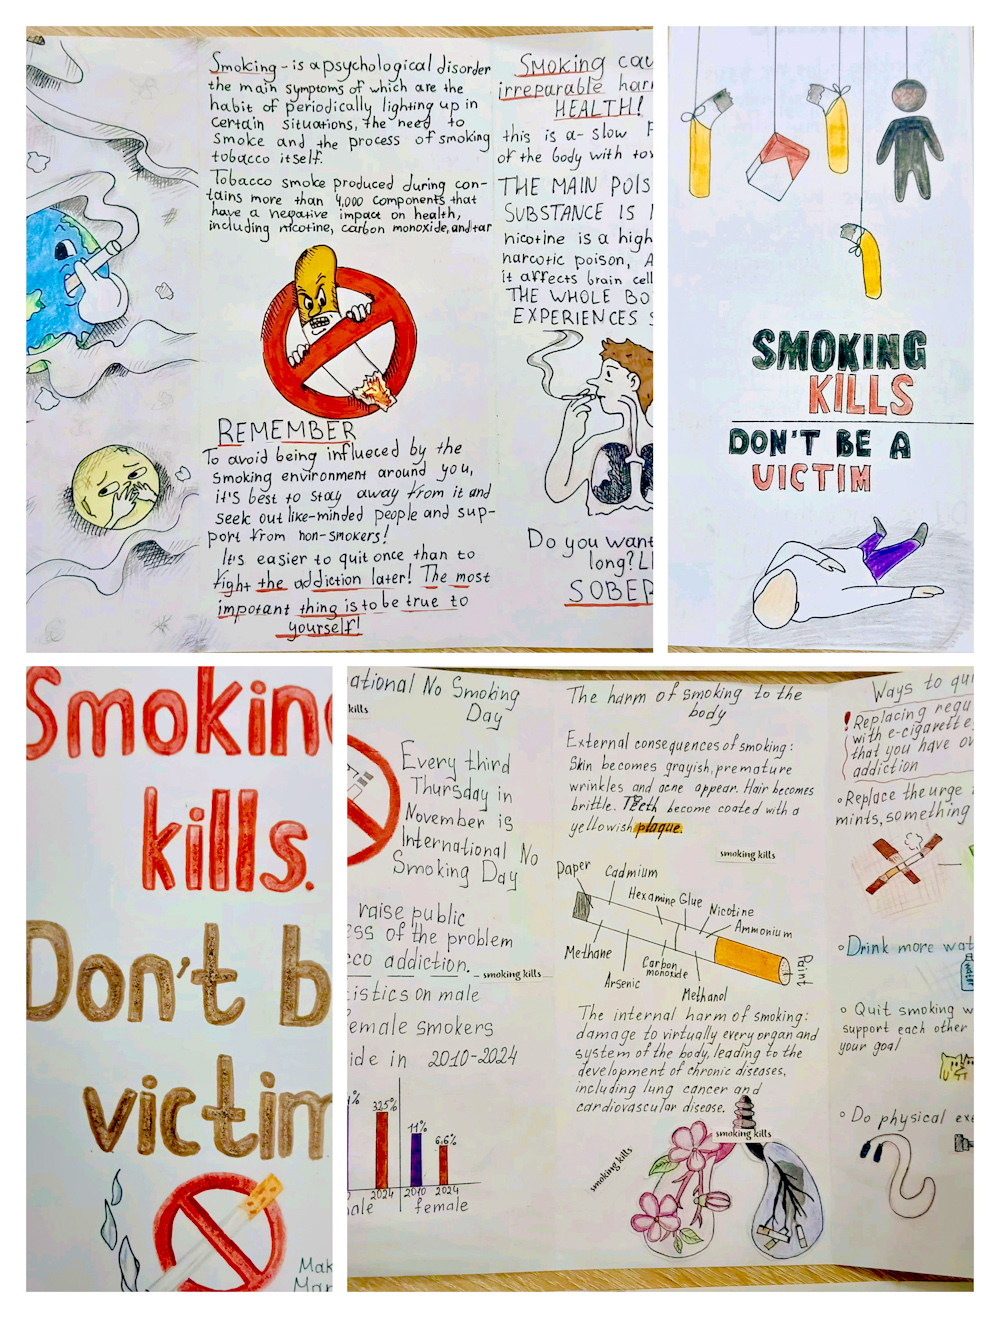 Smoking - is a psychological disorder
the main symptoms of which are the
habit of periodically lighting up in
certain situations, the need to
smoke and the process of smoking
tobacco itself.
Tobacco smoke produced during con-
tains more than 4,000 components that
have a negative impact on health,
including nicotine, carbon monoxide, and tar
REMEMBER
To avoid being influeced by the
smoking environment around you,
it's best to stay away from it and
seek out like-minded people and sup-
port from non-smokers!
It's easier to quit once than to
fight the addiction later! The most
impotant thing is to be true to
yourself!
Smoking cau
irreparable har
HEALTH!
this is a - slow P
of the body with to
THE MAIN POIS
SUBSTANCE IS
nicotine is a high
narcotic poison, A
it affects brain cell
THE WHOLE BO
EXPERIENCES
Do you want
long? LI
SOBER
SMOKING
KILLS
DON'T BE A
VICTIM
Smoking
kills.
Don't b
victim
Mak
Mar
ational No Smoking
Day
kills
Every third
Thursday in
November is
International No
Smoking Day
raise public
ess of the problem
cco addiction.
smoking kills
istics on male
female smokers
ide in 2010-2024
%
32,5%
11%
6.6%
2024
2010
2024
ale
female
The harm of smoking to the
body
External consequences of smoking:
Skin becomes grayish, premature
wrinkles and acne appear. Hair becomes
brittle. Teeth become coated with a
yellowish plaque.
smoking kills
Paper
Cadmium
Hexamine
Glue
Nicotine
Ammonium
Methane
Arsenic
Carbon
monoxide
Methanol
Paint
The internal harm of smoking:
damage to virtually every organ and
system of the body, leading to the
development of chronic diseases,
including lung cancer and
cardiovascular disease.
smoking kills
smoking kills
Ways to qui
! Replacing regu
with e-cigarette
that you have ov
addiction
Replace the urge
mints, something
Drink more wat
Quit smoking w
support each other
your goal
Do physical exe